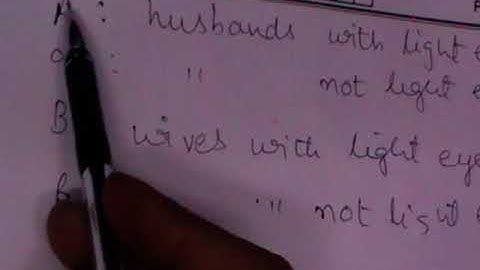 A : husbands with light
: " not light
B wives with light eye
" not light